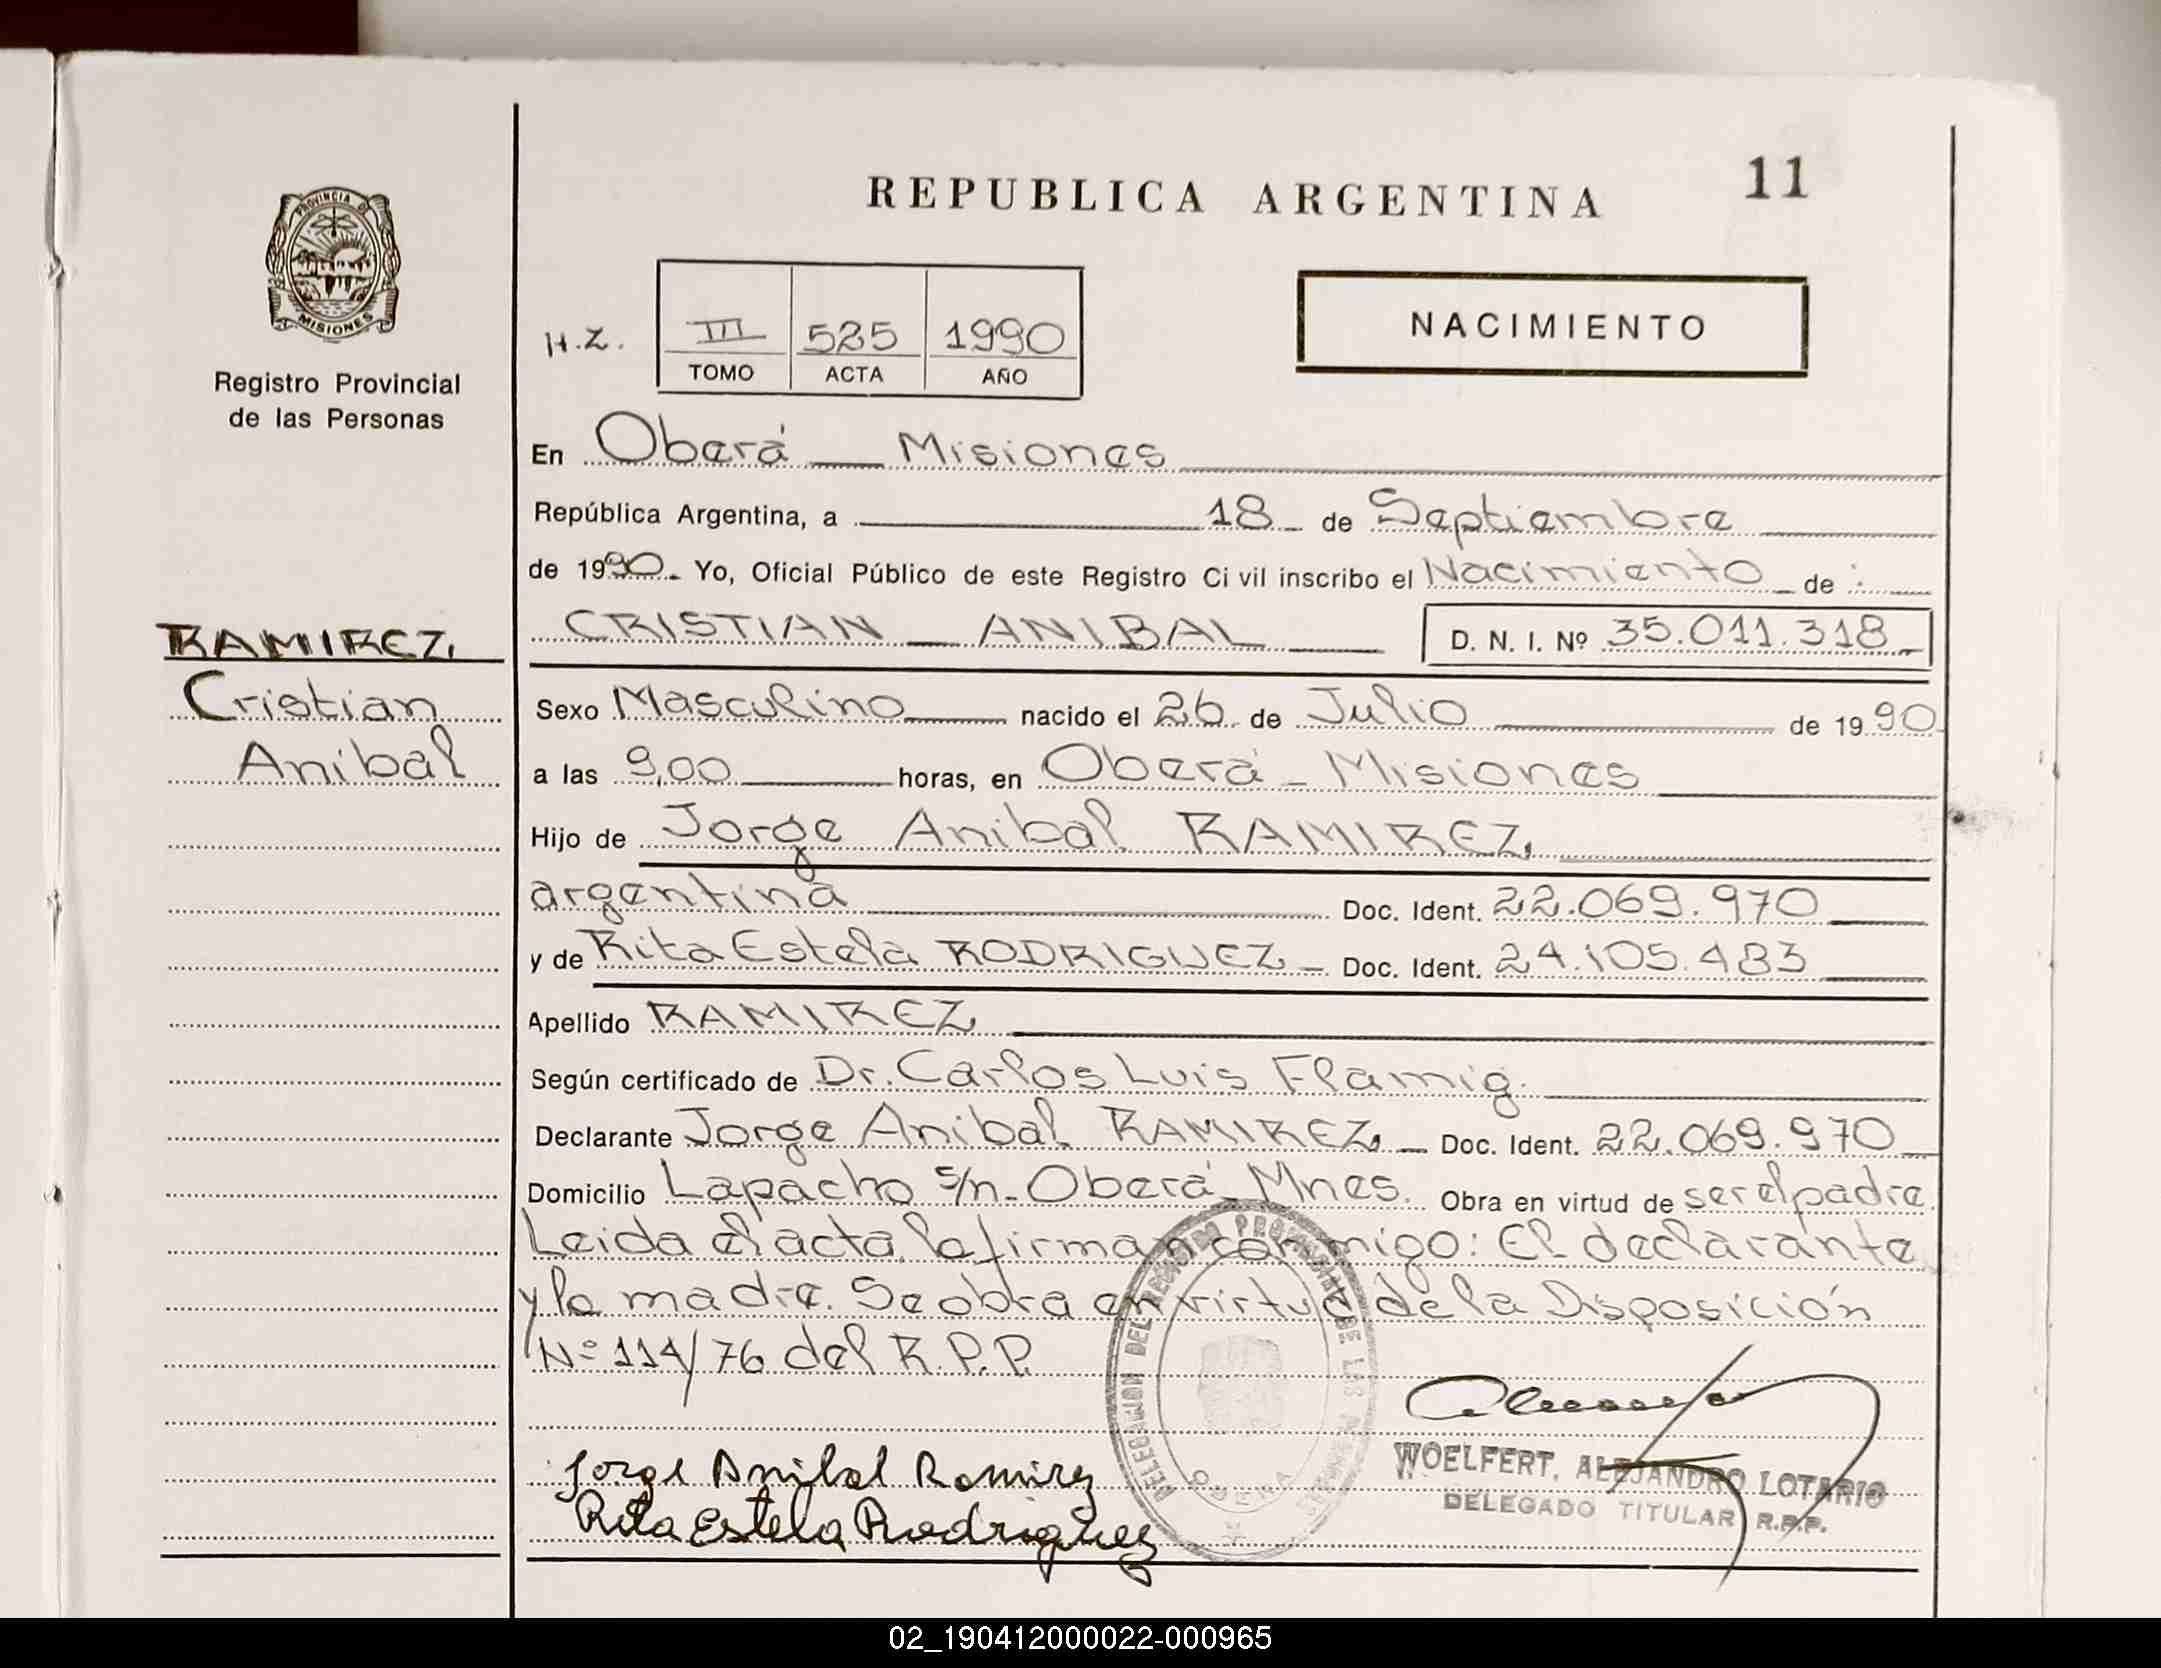 REPUBLICA ARGENTINA 11
PROVINCIA DE
MISIONES
Registro Provincial
de las Personas
NACIMIENTO
H.Z. III 525 1990
TOMO ACTA AÑO
En Oberá Misiones
República Argentina, a 18 de Septiembre
de 1990. Yo, Oficial Público de este Registro Ci vil inscribo el Nacimiento de :
CRISTIAN ANIBAL D. N. I. Nº 35.011.318
RAMIREZ
Cristian
Anibal
Sexo Masculino nacido el 26 de Julio de 1990
a las 9,00 horas, en Oberá - Misiones
Hijo de Jorge Anibal RAMIREZ
argentina Doc. Ident. 22.069.970
y de Rita Estela RODRIGUEZ Doc. Ident. 24.105.483
Apellido RAMIREZ
Según certificado de Dr. Carlos Luis Flamig.
Declarante Jorge Anibal RAMIREZ Doc. Ident. 22.069.970
Domicilio Lapacho s/n - Oberá Mnes. Obra en virtud de ser el padre.
Leida el acta la firman conmigo: El declarante
y la madre. Se obra en virtud de la Disposición
Nº 114/76 del R.P.P.
DELEGACION DEL REGISTRO PROVINCIAL DE LAS PERSONAS
OBERA
Jorge Anibal Ramirez
Rita Estela Rodriguez
WOELFERT, ALEJANDRO LOTARIO
DELEGADO TITULAR R.P.P.
02_190412000022-000965